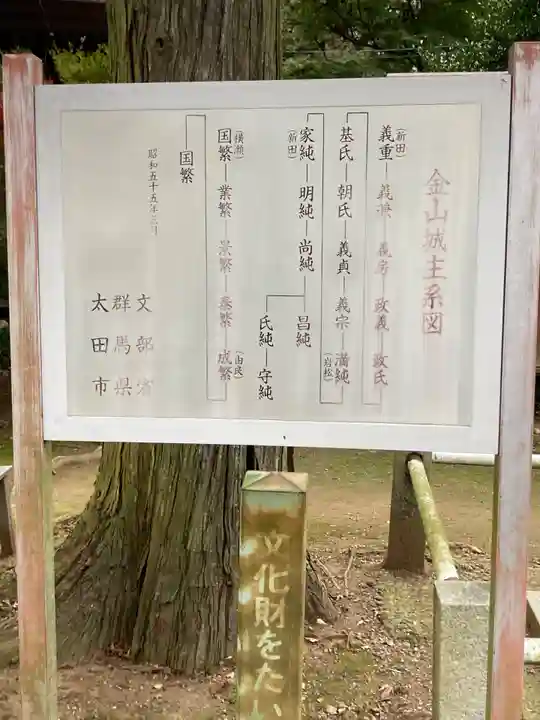 金山城主系図
(新田)
義重―義兼―義房―政義―政氏
基氏―朝氏―義貞―義宗―満純
(岩松)
(新田)
家純―明純―尚純
昌純
氏純―守純
(横瀬)
国繁―業繁―景繁―泰繁―成繁
(由良)
国繁
昭和五十五年三月
文部省
群馬県
太田市
文化財をたい